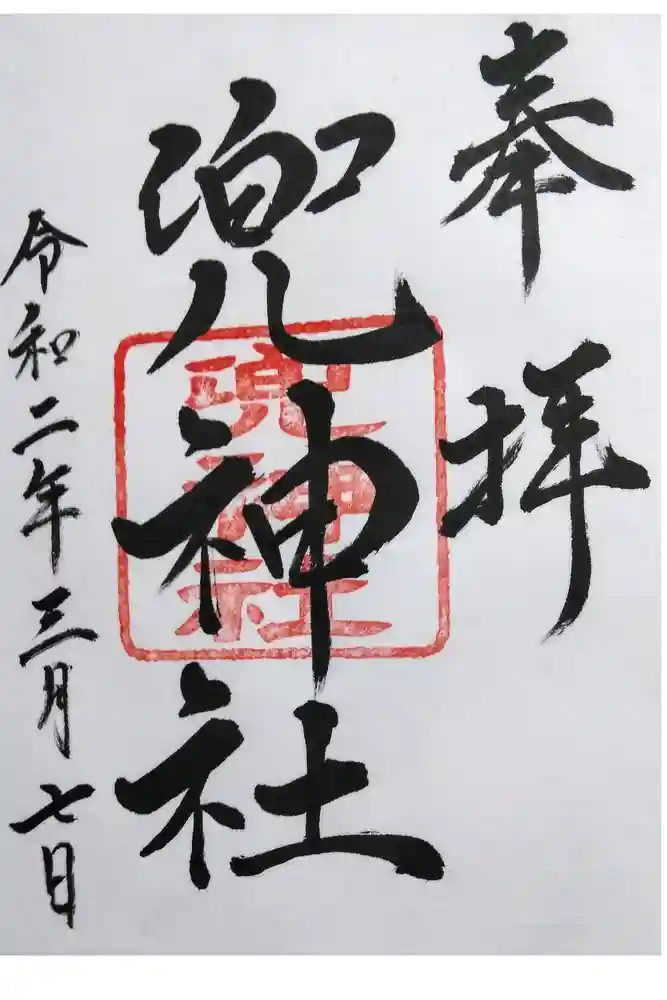 奉拝
兜神社
兜神社
令和二年三月七日